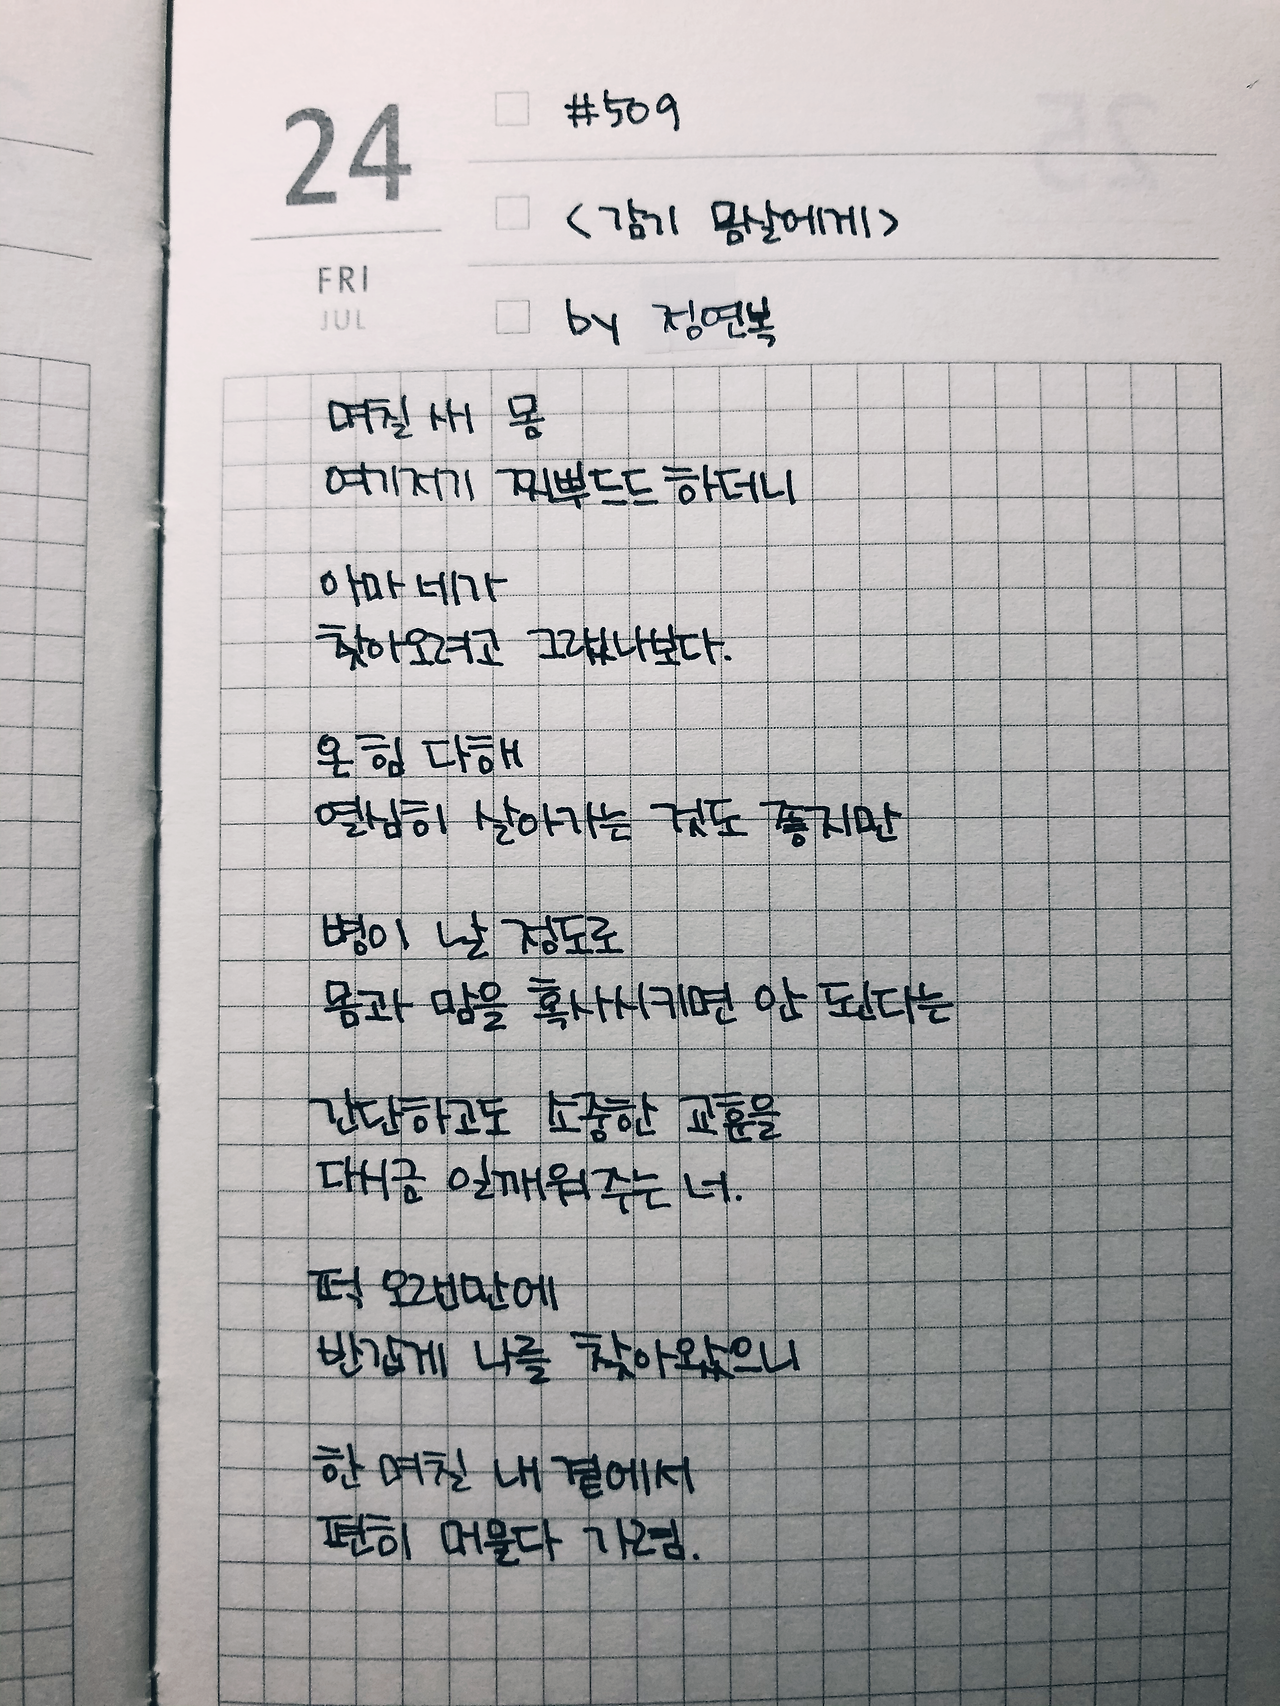 24
FRI
JUL
#509
<감기 몸살에게>
by 정연복
며칠 새 몸
여기저기 찌뿌드드하더니
아마 네가
찾아오려고 그랬나보다.
온힘 다해
열심히 살아가는 것도 좋지만
병이 날 정도로
몸과 맘을 혹사시키면 안 된다는
간단하고도 소중한 교훈을
다시금 일깨워주는 너.
퍽 오랜만에
반갑게 나를 찾아왔으니
한 며칠 내 곁에서
편히 머물다 가렴.